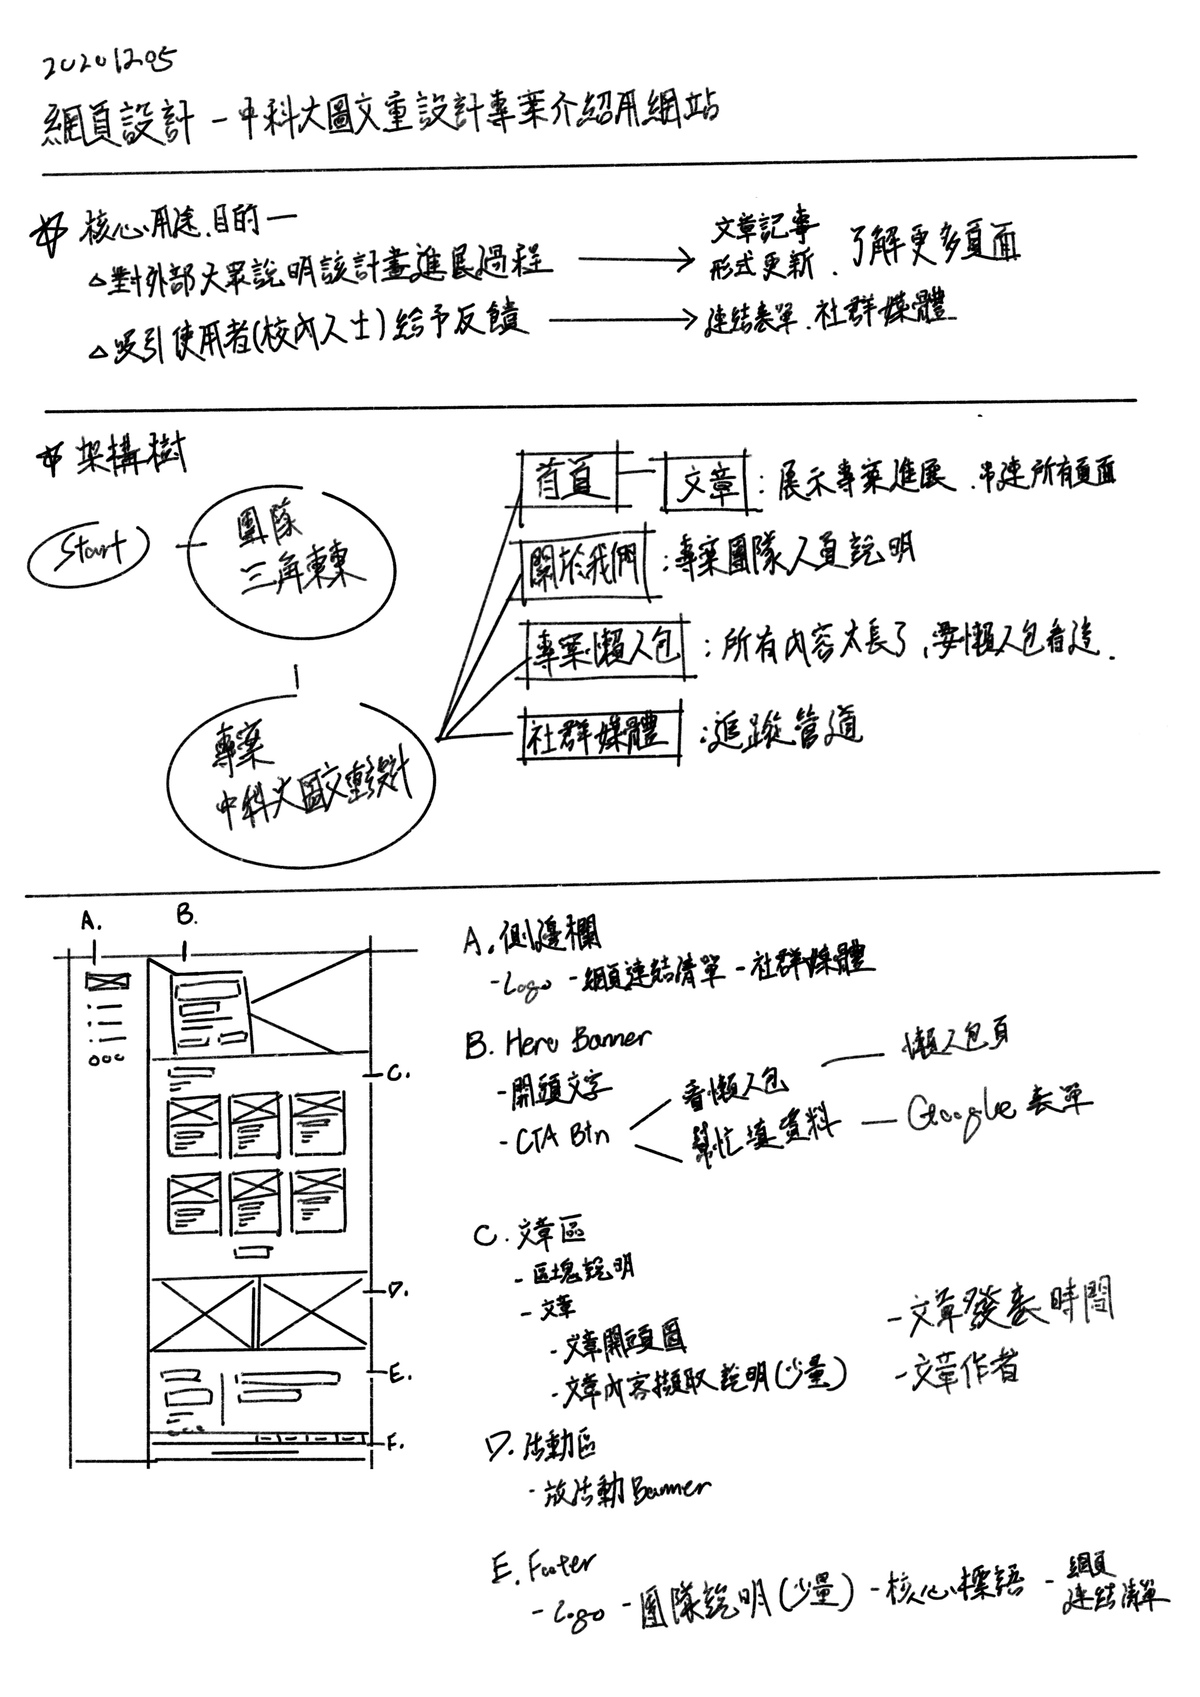 20201205
網頁設計 - 中科大圖文重設計專案介紹用網站
核心用途.目的一
△對外部大眾說明該計畫進展過程
文章記事
形式更新.了解更多頁面
△吸引使用者(校內人士)給予反饋
連結表單.社群媒體
架構樹
Start
團隊
三角東東
專案
中科大圖文重設計
首頁
文章:展示專案進展.串連所有頁面
關於我們:專案團隊人員說明
專案懶人包:所有內容太長了,要懶人包看這.
社群媒體:追蹤管道
A.
B.
C.
D.
E.
F.
A.側邊欄
-Logo -網頁連結清單 -社群媒體
B. Hero Banner
-開頭文字
-CTA Btn
看懶人包
懶人包頁
幫忙填資料
Google 表單
C.文章區
-區塊說明
-文章
-文章開頭圖
-文章內容擷取說明(少量)
-文章發表時間
-文章作者
D.活動區
-放活動Banner
E. Footer
-Logo -團隊說明(少量) -核心標語 -網頁
連結清單